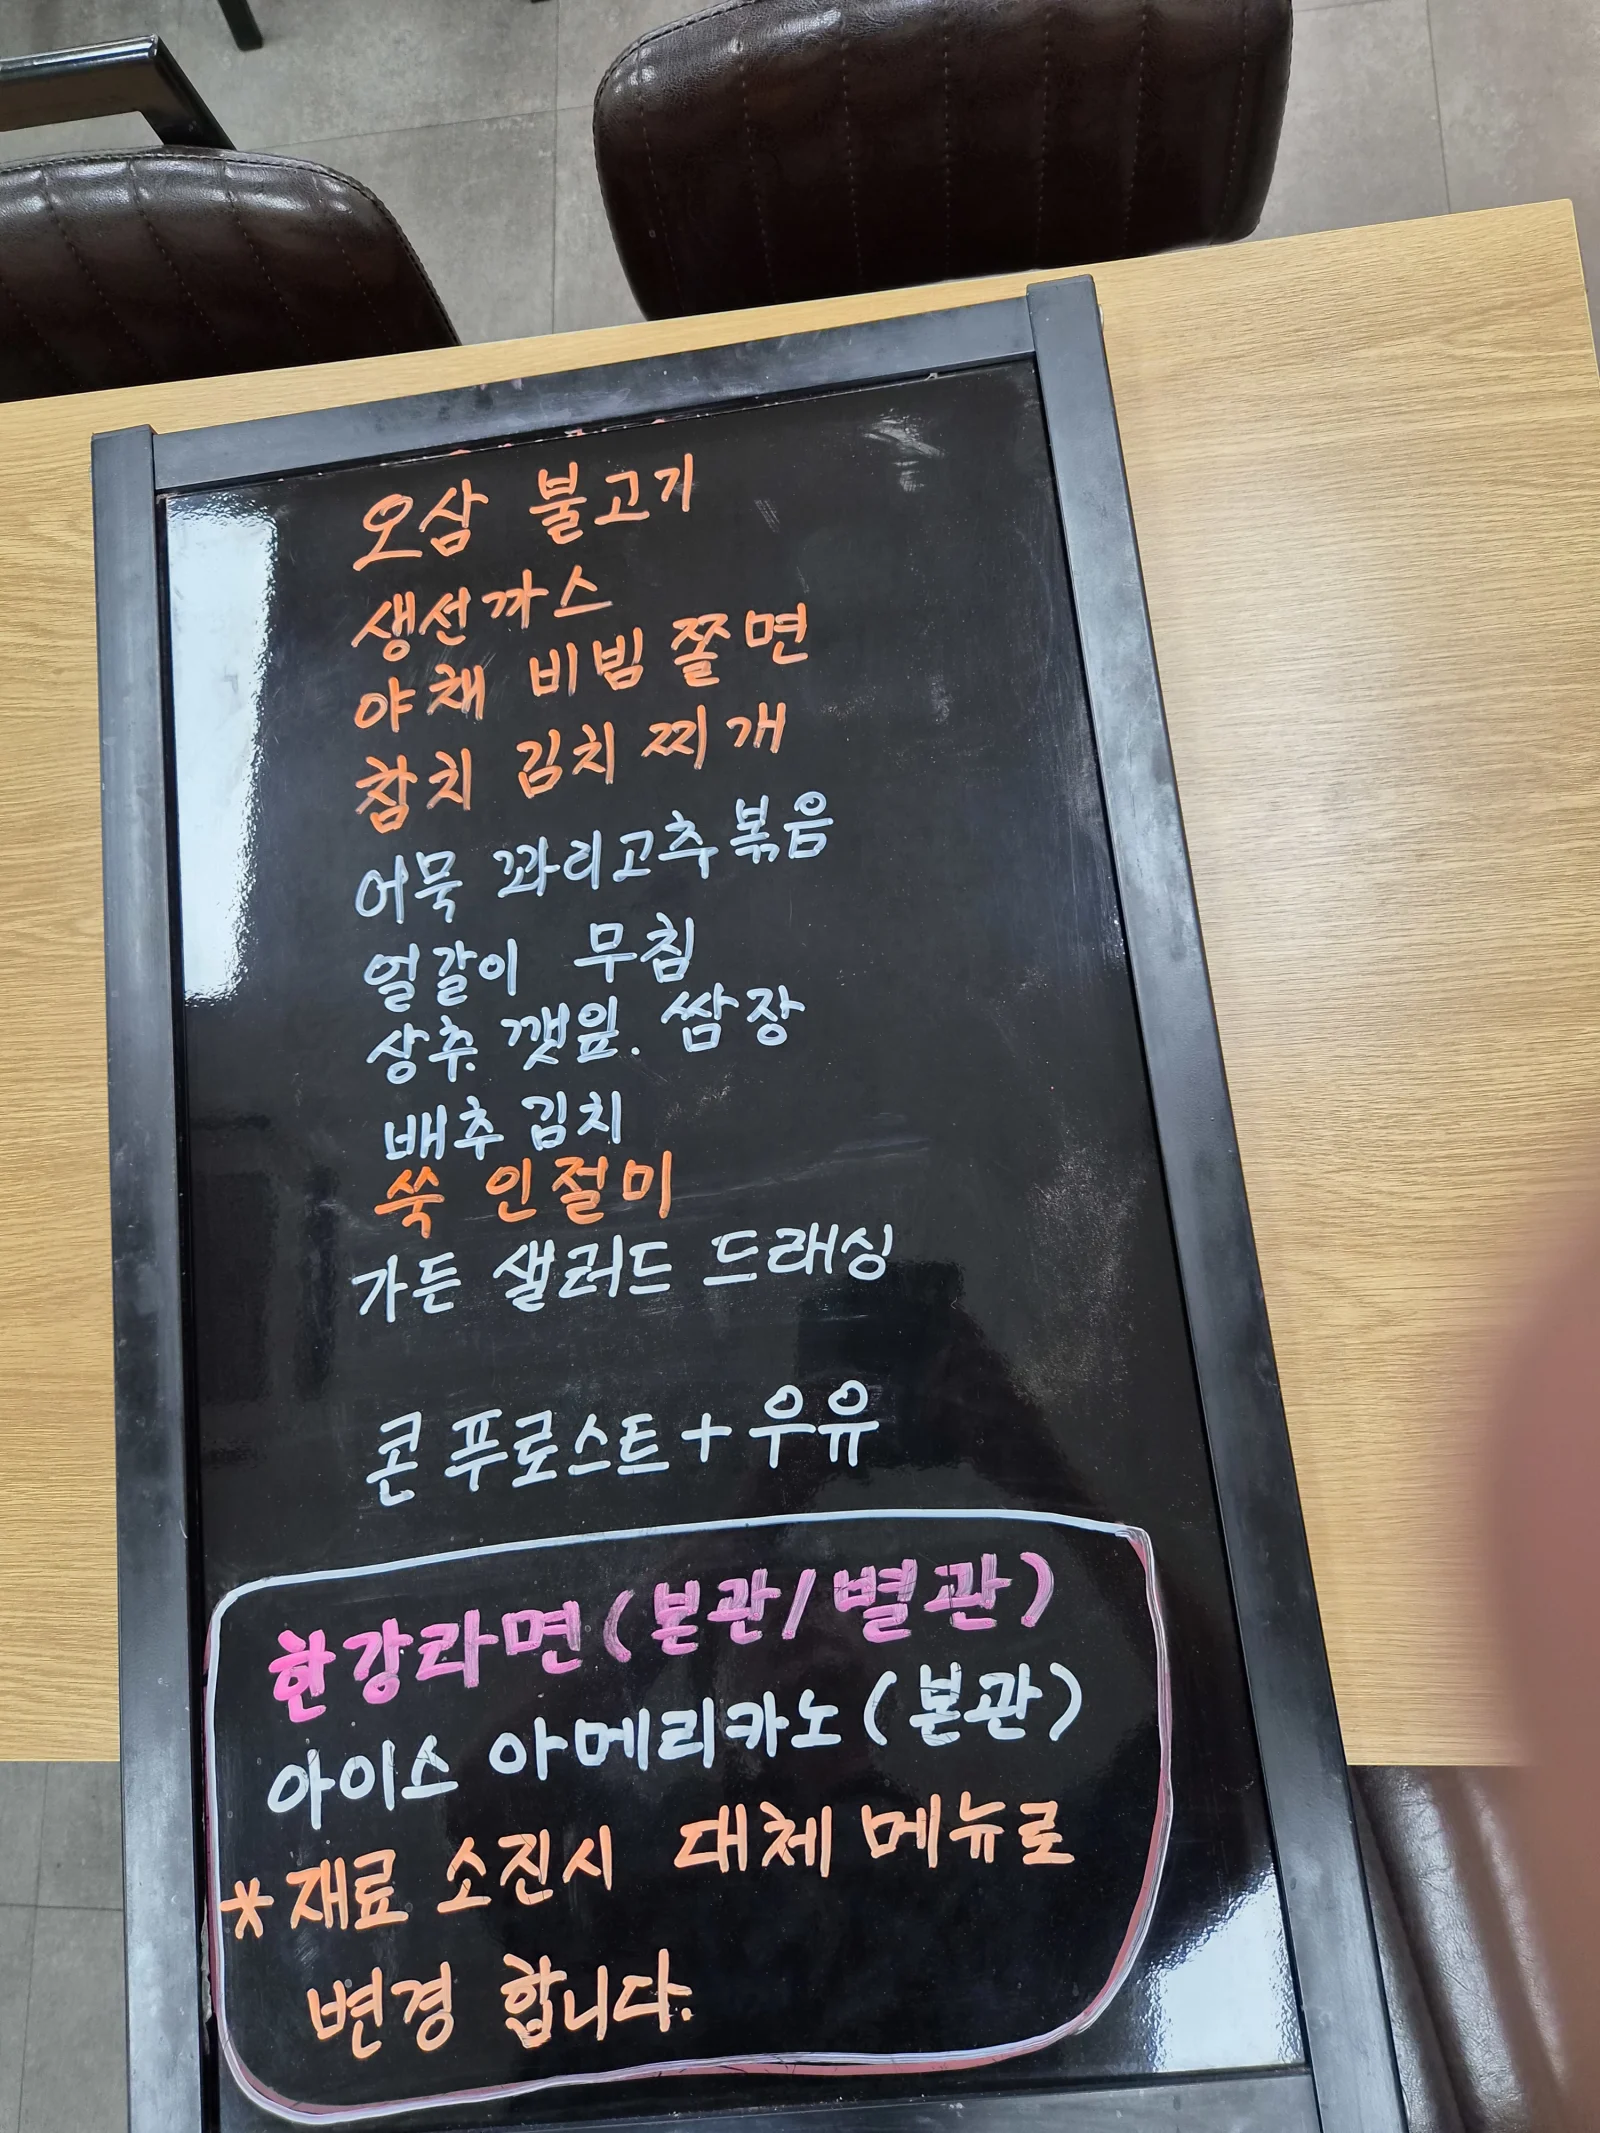 오삼 불고기
생선까스
야채 비빔쫄면
참치 김치찌개
어묵 꽈리고추볶음
얼갈이 무침
상추. 깻잎. 쌈장
배추김치
쑥 인절미
가든 샐러드 드래싱
콘푸로스트+우유
한강라면(본관/별관)
아이스 아메리카노(본관)
*재료 소진시 대체 메뉴로
변경 합니다.